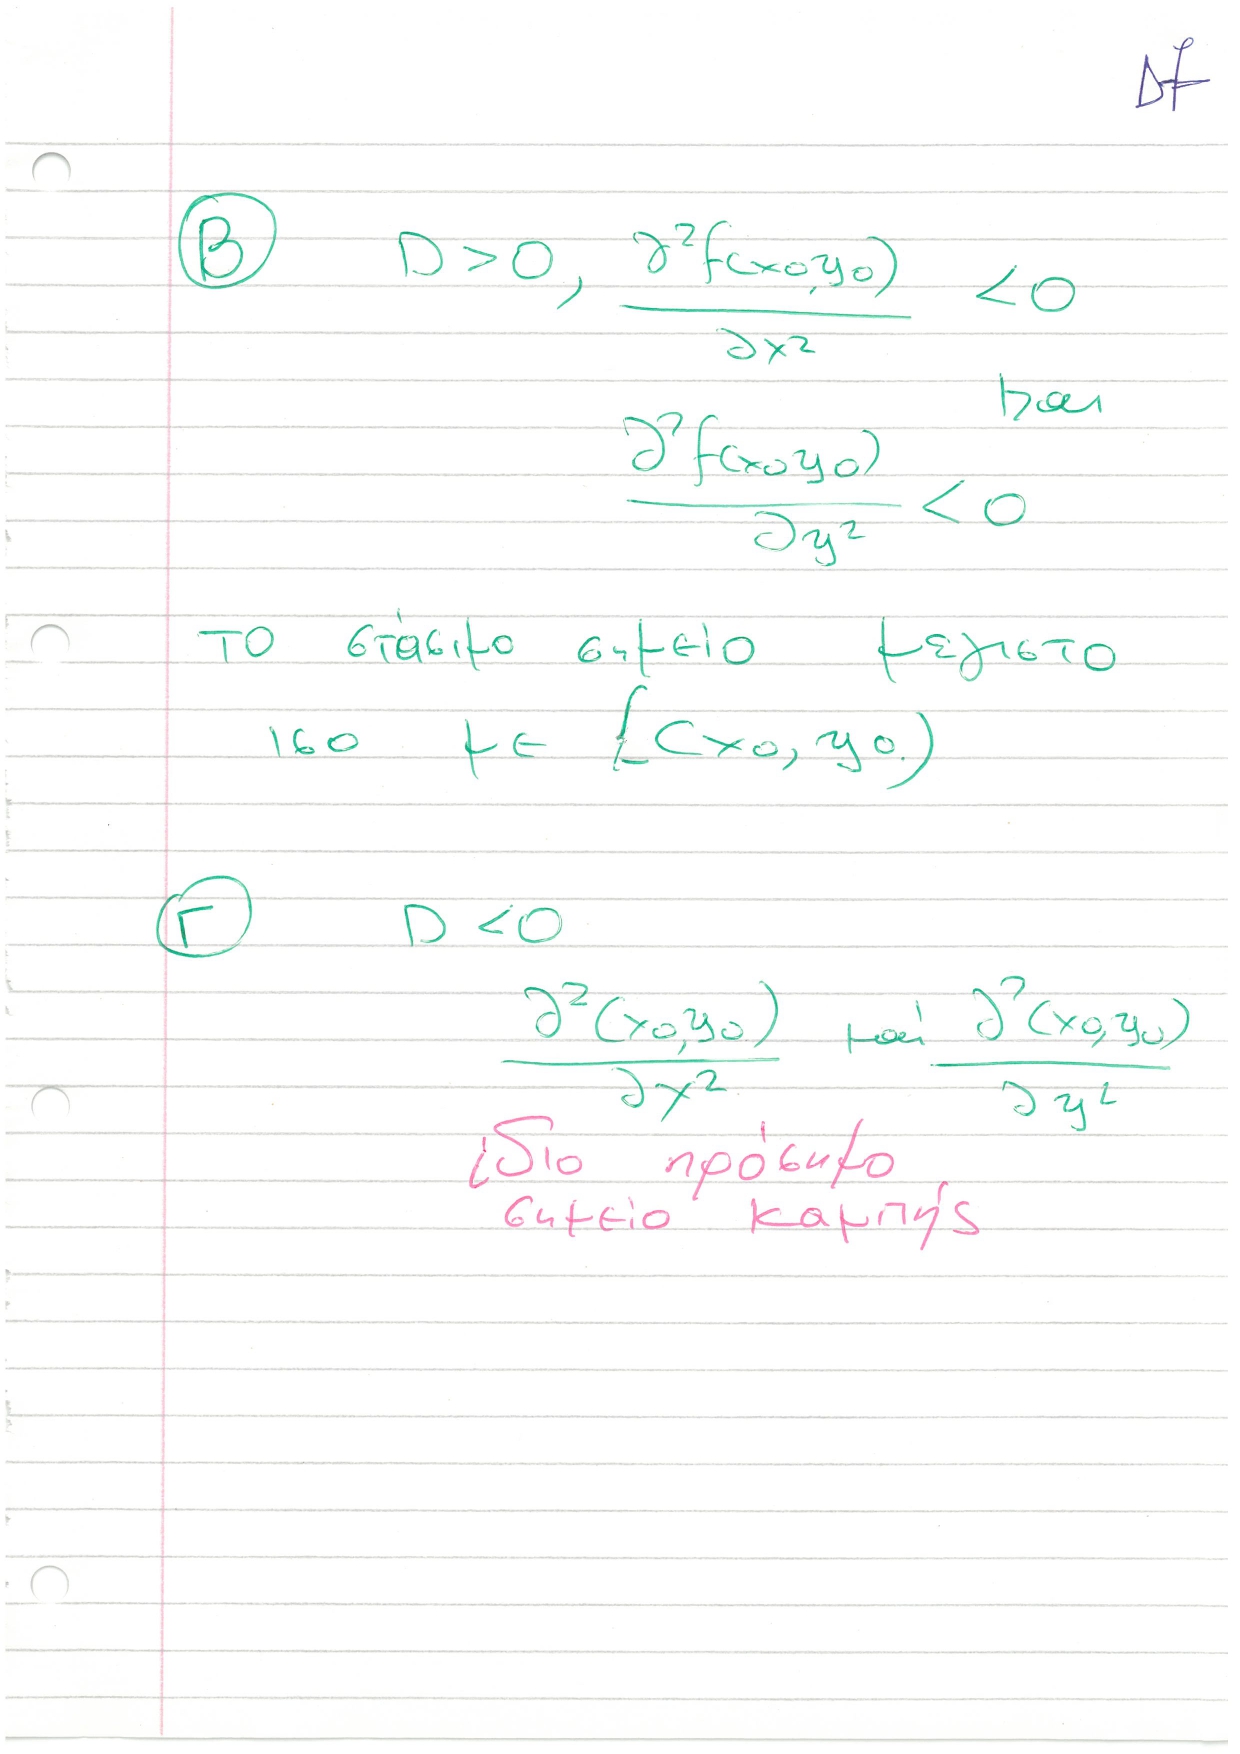 Δf
Β D>0, ∂²f(x0,y0)/∂x² <0
και
∂²f(x0y0)/∂y² <0
ΤΟ στάσιμο σημείο μεγιστο
ισο με f(x0, y0)
Γ D<0
∂²(x0,y0)/∂x² καί ∂²(x0,y0)/∂y²
ίδιο πρόσημο
σημείο καμπής